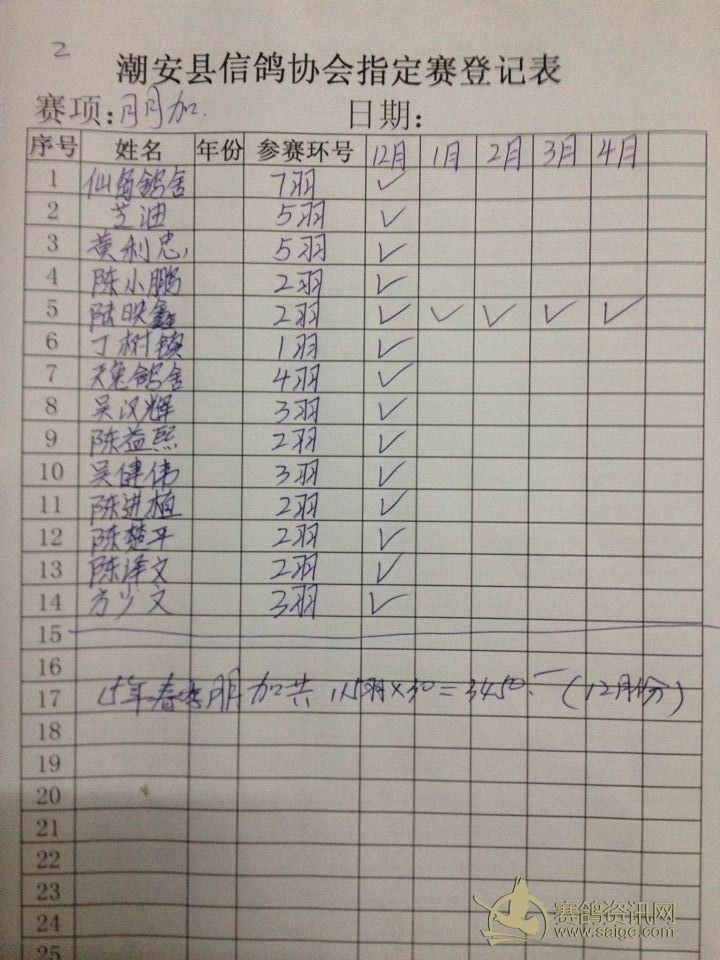 2
潮安县信鸽协会指定赛登记表
赛项: 月月加. 日期:
序号 姓名 年份 参赛环号 12月 1月 2月 3月 4月
1 仙 鸽舍 7羽 ✓
2 芝迪 5羽 ✓
3 黄利忠 5羽 ✓
4 陈小鹏 2羽 ✓
5 陆映鑫 2羽 ✓ ✓ ✓ ✓ ✓
6 丁树镇 1羽 ✓
7 鸽舍 4羽 ✓
8 吴汉辉 3羽 ✓
9 陈益熙 2羽 ✓
10 吴健伟 3羽 ✓
11 陈进植 2羽 ✓
12 陈楚平 2羽 ✓
13 陈泽文 2羽 ✓
14 方少文 3羽 ✓
15
16
17 15年春季月月加共115羽×30=3450.一(12月份)
18
19
20
21
22
23
24
25
赛鸽资讯网
www.saige.com